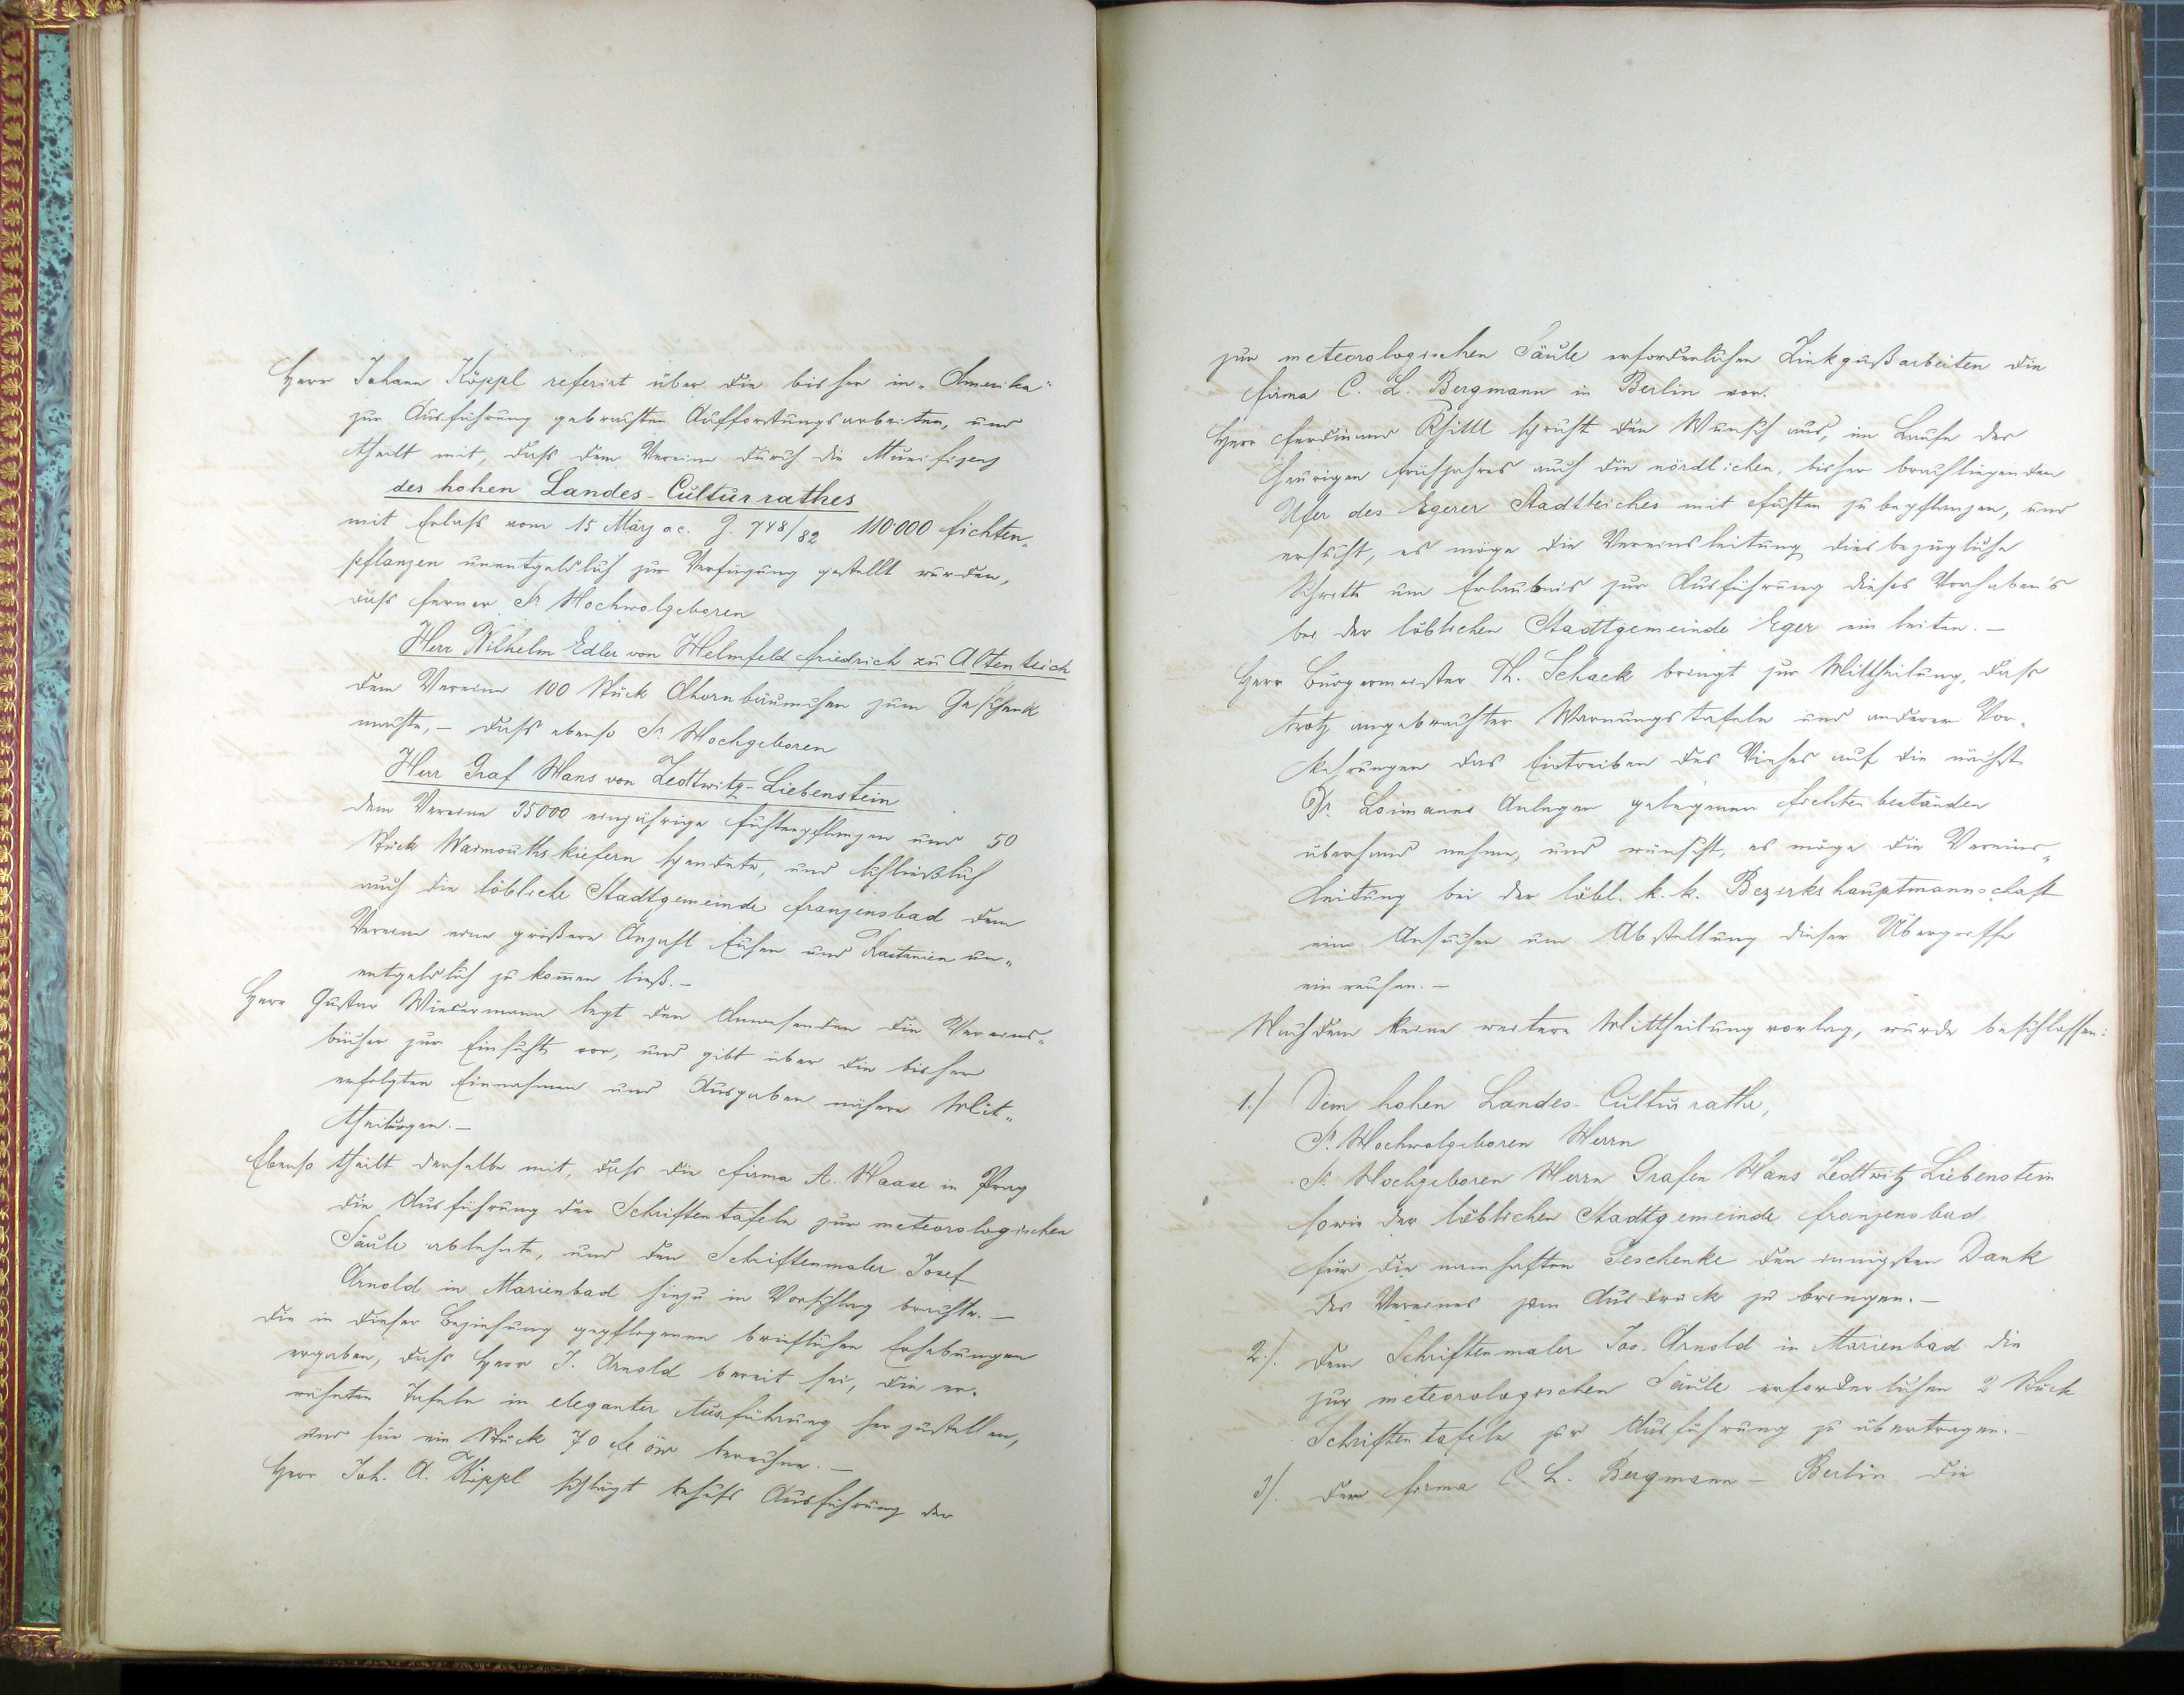 Herr Johann Köppl referirt über die bisher in „Amerika“
zur Ausführung gebrachten Aufforstungsarbeiten, und
theilt mit, dass dem Vereine durch die Munifizenz
des hohen Landes-Culturrathes
mit Erlass vom 15 März ac. Z. 748/82 110000 Fichten„
pflanzen unentgeldlich zur Verfügung gestellt wurden,
dass ferner Sr Hochwolgeboren
Herr Wilhelm Edler von Helmfeld Friedrich zu Altenteich
dem Vereine 100 Stück Ahornbäumchen zum Geschenk
machte, – dass ebenso Sr Hochgeboren
Herr Graf Hans von Zedtwitz-Liebenstein
dem Vereine 35000 einjährige Fichtenpflanzen und 50
Stück Waimouthskiefern spendete, und schließlich
auch die löbliche Stadtgemeinde Franzensbad dem
Vereine eine größere Anzahl Eichen und Kastanien un„
entgeldlich zu kom̅en ließ. –
Herr Gustav Wiedermann legt den Anwesenden die Vereins„
bücher zur Einsicht vor, und gibt über die bisher
erfolgten Einnahmen und Ausgaben nähere Mit„
theilungen. –
Ebenso theilt derselbe mit, dass die Firma A. Haase in Prag
die Ausführung der Schriftentafeln zur meteorologischen
Säule ablehnte, und den Schriftenmaler Josef
Arnold in Marienbad hiezu in Vorschlag brachte. –
Die in dieser Beziehung gepflogenen brieflichen Erhebungen
ergaben, dass Herr J. Arnold bereit sei, die er„
wähnten Tafeln in eleganter Ausführung herzustellen,
und für ein Stück 70 fl öW. berechne. –
Herr Joh. A. Köppl schlägt behufs Ausführung der
zur meteorologischen Säule erforderlichen Zinkgußarbeiten die
Firma C. L. Bergmann in Berlin vor.
Herr Ferdinand Khittl spricht den Wunsch aus, im Laufe des
heurigen Frühjahres auch die nördlichen, bisher brachliegenden
Ufer des Egerer Stadtteiches mit Fichten zu bepflanzen, und
ersucht, es möge die Vereinsleitung diesbezügliche
Schritte um Erlaubnis zur Ausführung dieses Vorhaben's
bei der löblichen Stadtgemeinde Eger ein leiten. –
Herr Bürgermeister Th. Schack bringt zur Mittheilung, dass
trotz angebrachter Warnungstafeln und anderer Vor„
kehrungen das Eintreiben des Viehes auf die nächst
Dr. Loimanns Anlagen gelegenen Fichtenbestände
überhand nehme, und wünscht, es möge die Vereins„
leitung bei der löbl. k. k. Bezirkshauptmannschaft
ein Ansuchen um Abstellung dieser Übergriffe
ein reichen. –
Nachdem keine weitere Mittheilung vorlag, wurde beschlossen:
1./ Dem hohen Landes-Culturrathe,
Sr. Hochwolgeboren Herrn
Sr Hochgeboren Herrn Grafen Hans Zedtwitz Liebenstein
sowie der löblichen Stadtgemeinde Franzensbad
für die namhaften Geschenke den innigsten Dank
des Vereines zum Ausdruck zu bringen. –
2./. Dem Schriftenmaler Jos. Arnold in Marienbad die
zur meteorologischen Säule erforderlichen 2 Stück
Schriftentafeln zur Ausführung zu übertragen. –
3/. Der Firma C. L. Bergmann – Berlin die